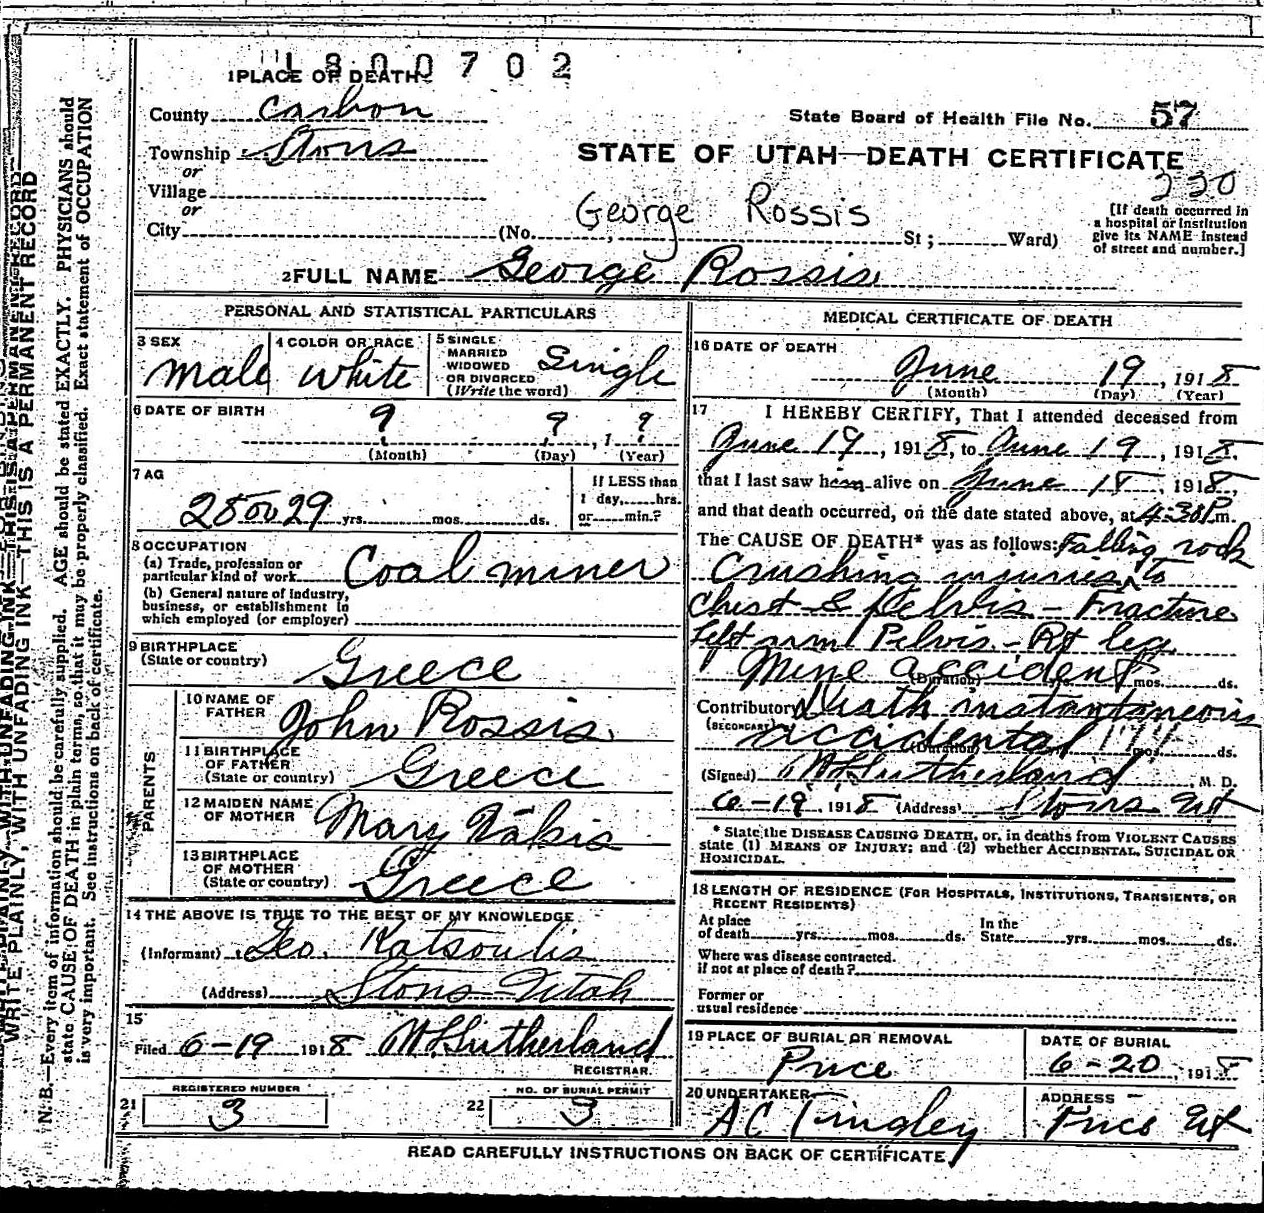 1800702
1 PLACE OF DEATH
County Carbon
State Board of Health File No. 57
Township Storrs
or
STATE OF UTAH—DEATH CERTIFICATE
Village
330
or
George Rossis
City (No. , St ; Ward)
[If death occurred in
a hospital or institution
give its NAME instead
of street and number.]
2 FULL NAME George Rossis
PERSONAL AND STATISTICAL PARTICULARS
3 SEX
Male
4 COLOR OR RACE
White
5 SINGLE
MARRIED
WIDOWED
OR DIVORCED
(Write the word)
Single
6 DATE OF BIRTH
? ? , 1 ?
(Month) (Day) (Year)
7 AG
28 or 29 yrs. mos. ds.
If LESS than
1 day, hrs.
or min.?
8 OCCUPATION
(a) Trade, profession or
particular kind of work Coal miner
(b) General nature of industry,
business, or establishment in
which employed (or employer)
9 BIRTHPLACE
(State or country) Greece
PARENTS
10 NAME OF
FATHER John Rossis
11 BIRTHPLACE
OF FATHER
(State or country) Greece
12 MAIDEN NAME
OF MOTHER Mary Nakis
13 BIRTHPLACE
OF MOTHER
(State or country) Greece
14 THE ABOVE IS TRUE TO THE BEST OF MY KNOWLEDGE
(Informant) Geo. Katsoulis
(Address) Storrs Utah
15
Filed 6-19 1918 Sutherland
REGISTRAR.
REGISTERED NUMBER
21 3
NO. OF BURIAL PERMIT
22 3
MEDICAL CERTIFICATE OF DEATH
16 DATE OF DEATH
June 19 , 1918
(Month) (Day) (Year)
17 I HEREBY CERTIFY, That I attended deceased from
June 19 , 1918, to June 19 , 1918.
that I last saw him alive on June 18 , 1918,
and that death occurred, on the date stated above, at 4:30 P m.
The CAUSE OF DEATH* was as follows: Falling rock
Crushing injuries to
Chest & Pelvis - Fracture
Left arm Pelvis - Rt leg
Mine accident
(Duration) yrs. mos. ds.
Contributory Death instantaneous
(SECONDARY) accidental
(Duration) mos. ds.
(Signed) Sutherland , M. D.
6-19 1918 (Address) Storrs Ut
* State the DISEASE CAUSING DEATH, or, in deaths from VIOLENT CAUSES
state (1) MEANS OF INJURY; and (2) whether ACCIDENTAL, SUICIDAL OR
HOMICIDAL.
18 LENGTH OF RESIDENCE (FOR HOSPITALS, INSTITUTIONS, TRANSIENTS, OR
RECENT RESIDENTS)
At place
of death yrs. mos. ds.
In the
State yrs. mos. ds.
Where was disease contracted.
if not at place of death?
Former or
usual residence
19 PLACE OF BURIAL OR REMOVAL
Price
DATE OF BURIAL
6-20 1918
20 UNDERTAKER
A C Tingley
ADDRESS
Price Ut
READ CAREFULLY INSTRUCTIONS ON BACK OF CERTIFICATE
WRITE PLAINLY, WITH UNFADING INK—THIS IS A PERMANENT RECORD
N. B.—Every item of information should be carefully supplied. AGE should be stated EXACTLY. PHYSICIANS should
state CAUSE OF DEATH in plain terms, so that it may be properly classified. Exact statement of OCCUPATION
is very important. See instructions on back of certificate.